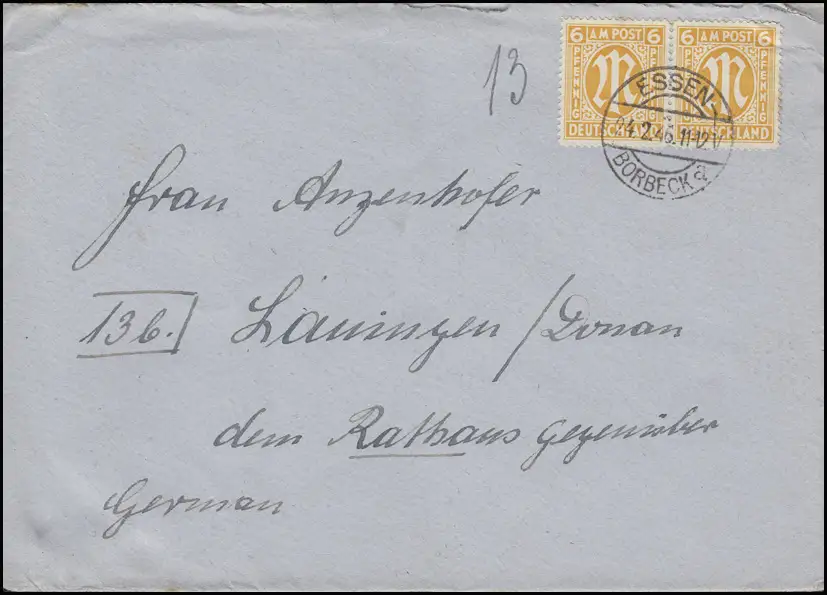 6 AM POST 6 6 AM POST 6
PFENNIG PFENNIG PFENNIG PFENNIG
M M
DEUTSCHLAND DEUTSCHLAND
ESSEN-
4.2.46.11-12.V
BORBECK a
13
Frau Anzenhofer
13b. Lauingen/Donau
dem Rathaus gegenüber
German